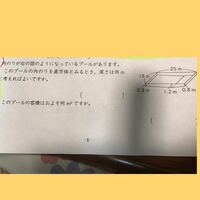 内のりが右の図のようになっているプールがあります。
このプールの内のりを直方体とみるとき, 深さは何m
と考えればよいですか。
このプールの容積はおよそ何m³ですか。
25m
15m
0.8m
1.2m
0.8m